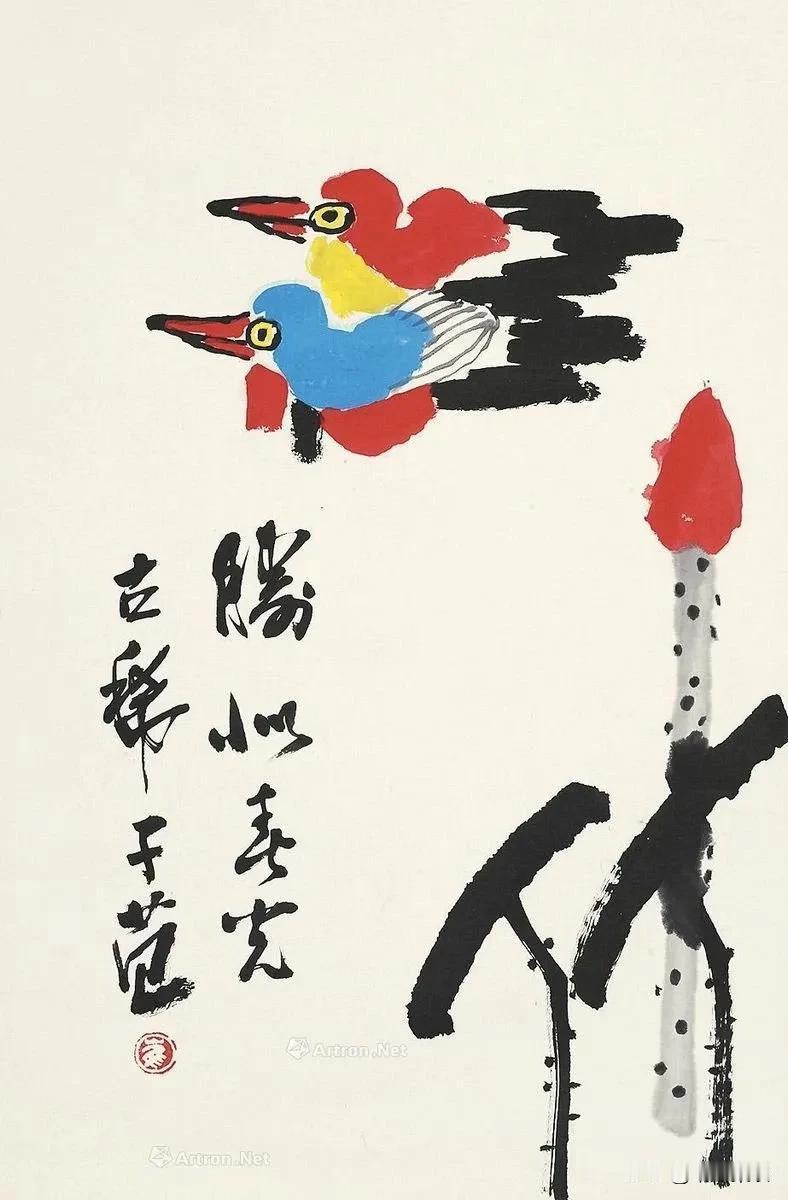 勝似春光
古稀子范
Artron.Net
Artron.Net